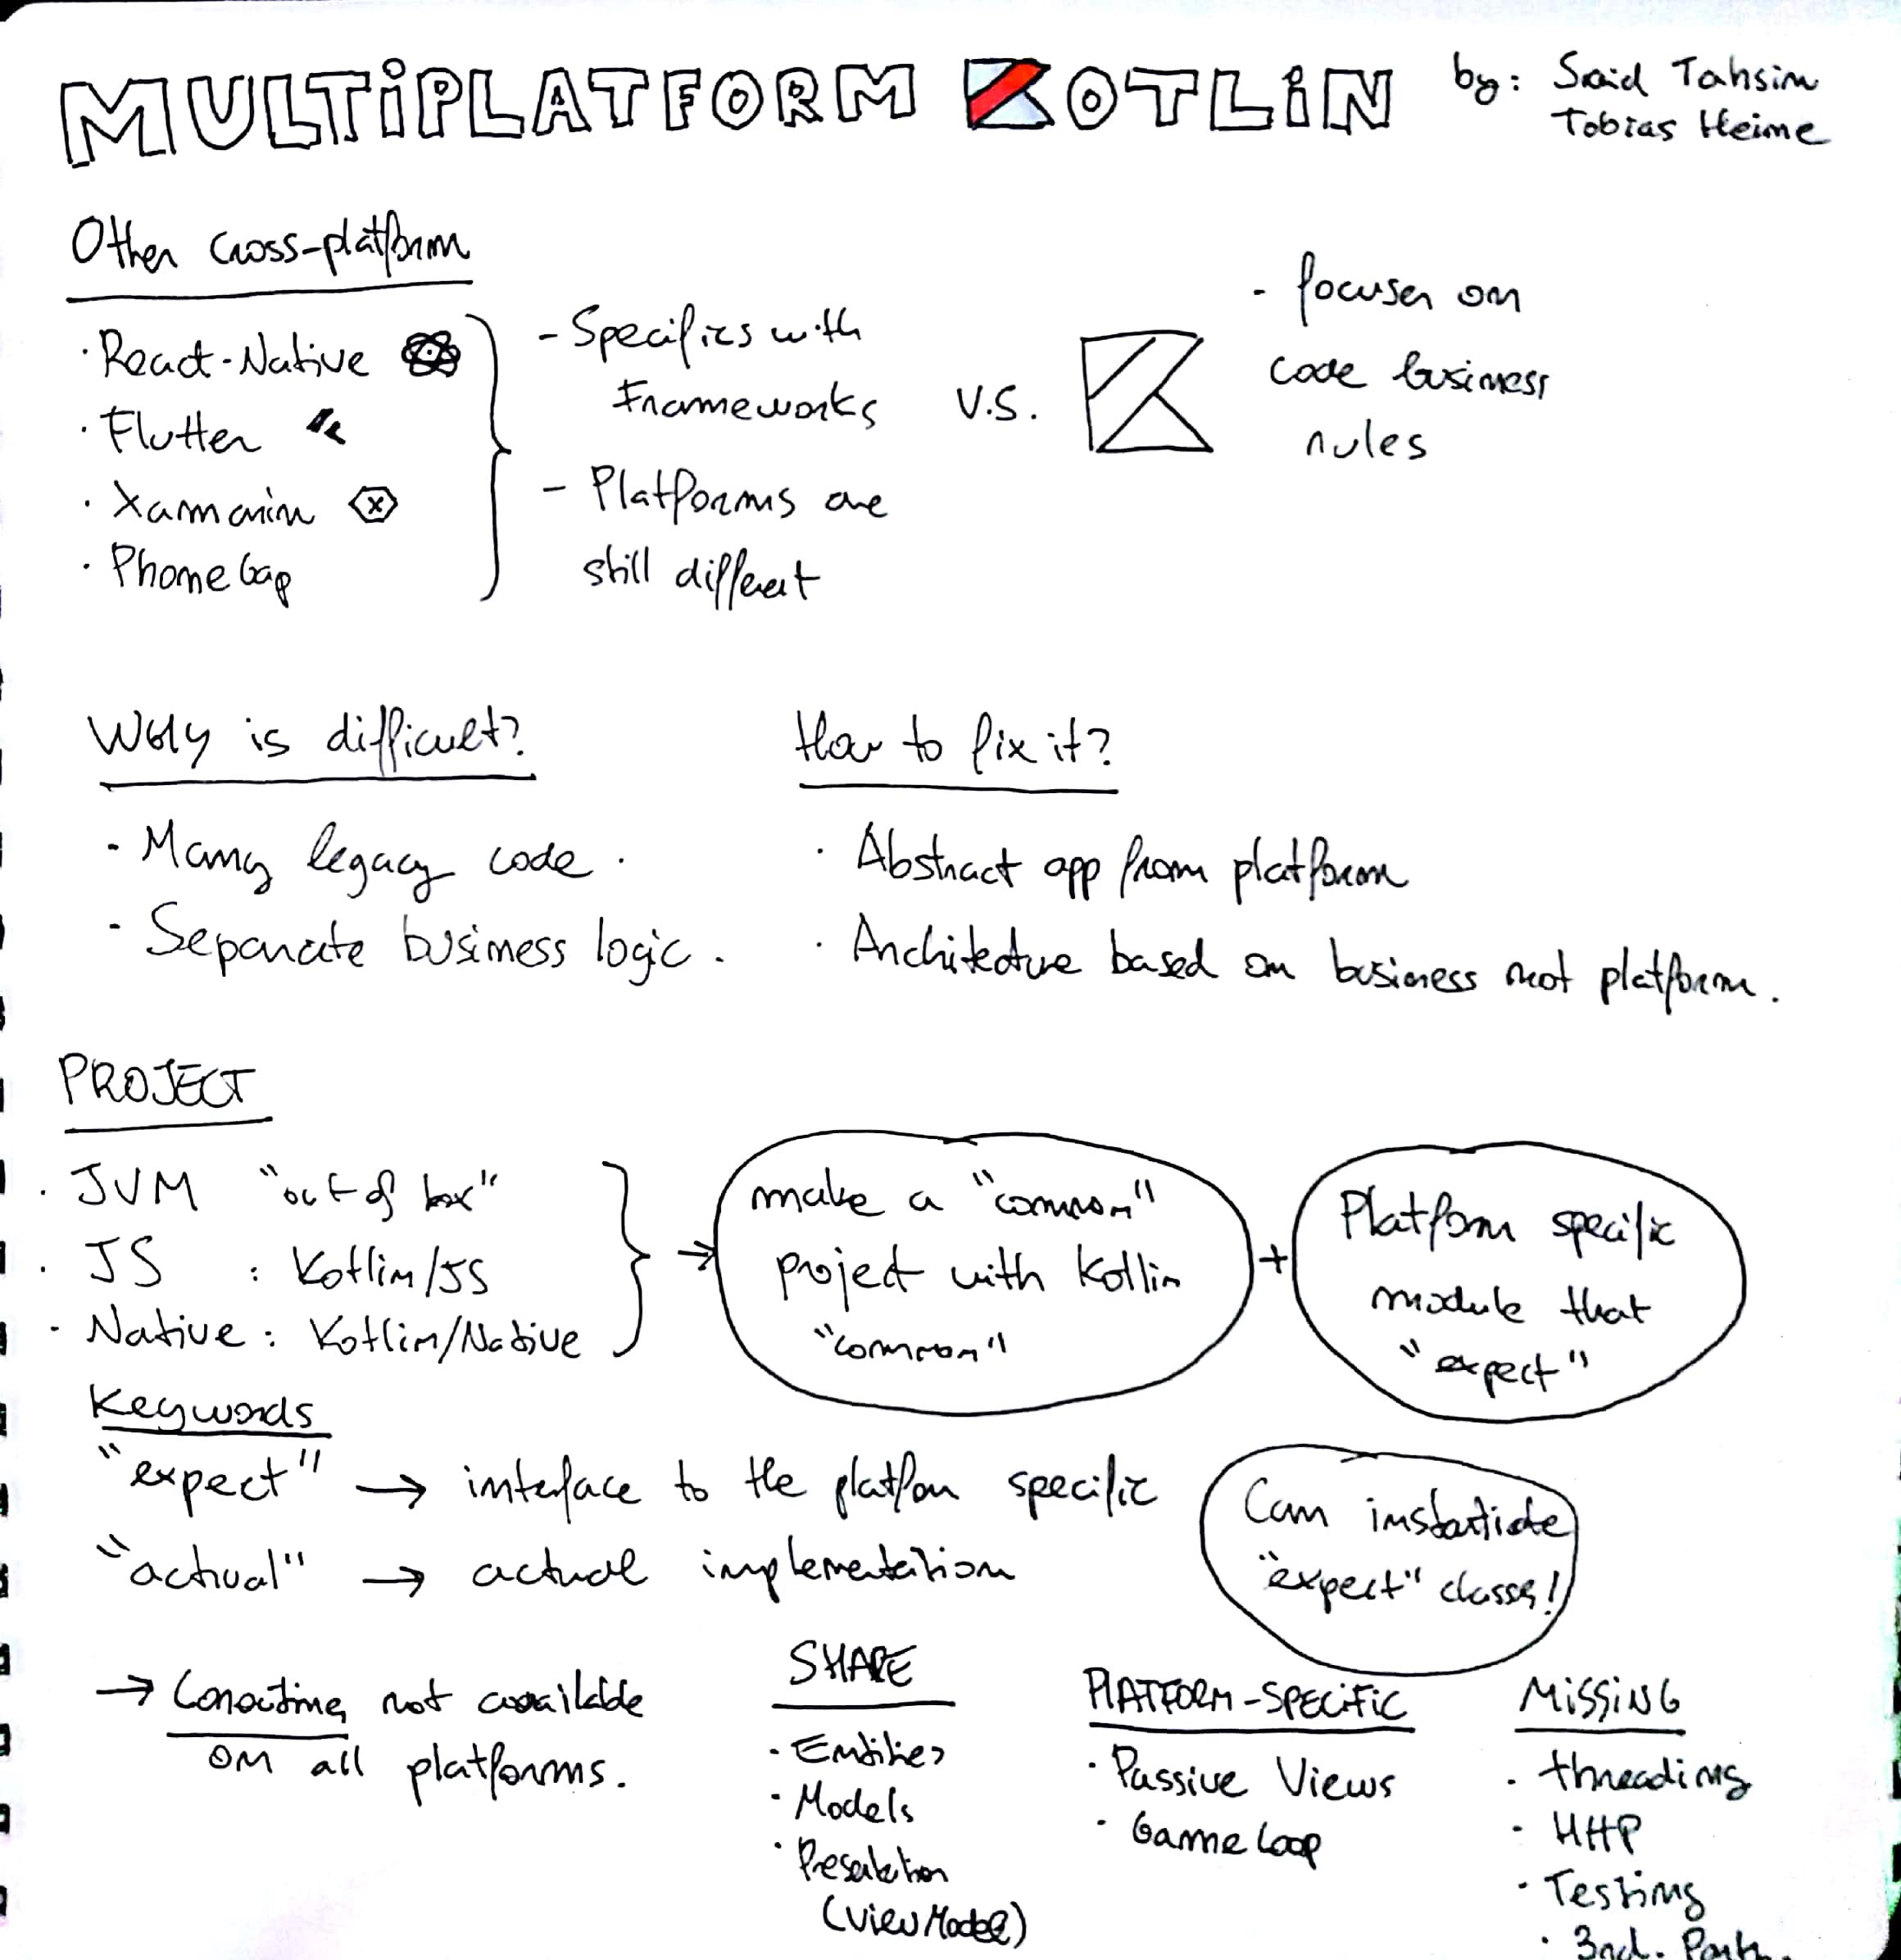 MULTIPLATFORM KOTLIN
by: Said Tahsin
Tobias Heine
Other cross-platform
· React-Native
· Flutter
· Xamarin
· PhoneGap
- Specifics with
Frameworks
- Platforms are
still different
V.S.
- focuses on
code business
rules
Why is difficult?
- Many legacy code.
- Separate business logic.
How to fix it?
· Abstract app from platform
· Architecture based on business not platform.
PROJECT
· JVM "out of box"
· JS : Kotlin/JS
· Native : Kotlin/Native
make a "common"
project with Kotlin
"common"
+
Platform specific
module that
"expect"
Keywords
"expect" → interface to the platfom specific
"actual" → actual implementation
Can instantiate
"expect" classes!
→ Coroutines not available
on all platforms.
SHARE
· Entities
· Models
· Presentation
(ViewModel)
PLATFORM-SPECIFIC
· Passive Views
· Game Loop
MISSING
· threading
· HTTP
· Testing
· 3rd. Party